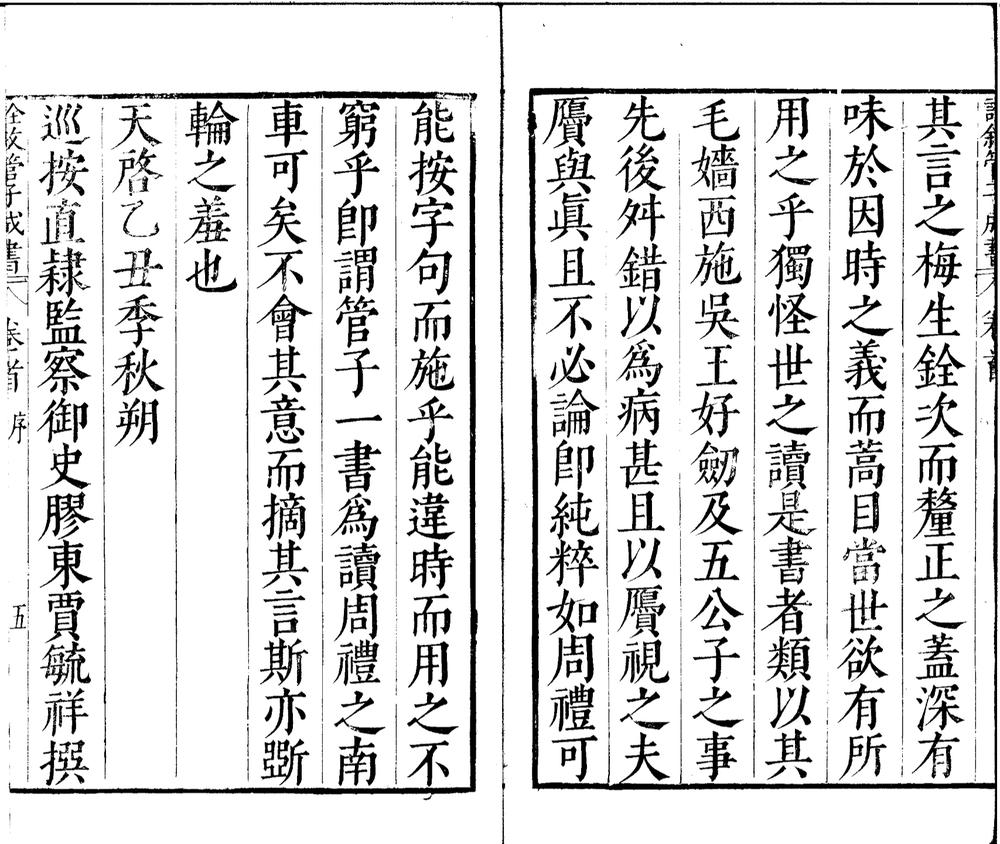 其言之梅生銓次而釐正之蓋深有
味於因時之義而蒿目當世欲有所
用之乎獨怪世之讀是書者類以其
毛嬙西施吳王好劒及五公子之事
先後舛錯以爲病甚且以贗視之夫
贗與眞且不必論卽純粹如周禮可
能按字句而施乎能違時而用之不
窮乎卽謂管子一書爲讀周禮之南
車可矣不會其意而摘其言斯亦斲
輪之羞也
天啓乙丑季秋朔
巡按直隸監察御史膠東賈毓祥撰
管子成書 卷首 序 五